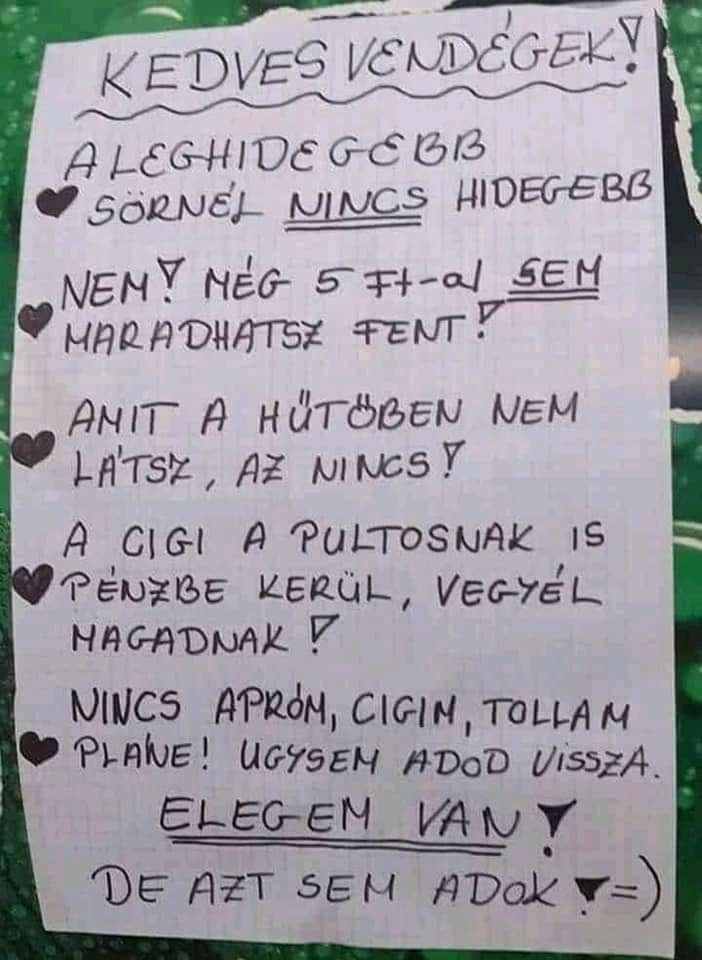 KEDVES VENDÉGEK!
A LEGHIDEGEBB
SÖRNÉL NINCS HIDEGEBB
NEM! MÉG 5 Ft-al SEM
MARADHATSZ FENT!
AMIT A HŰTŐBEN NEM
LÁTSZ, AZ NINCS!
A CIGI A PULTOSNAK IS
PÉNZBE KERÜL, VEGYÉL
MAGADNAK!
NINCS APRÓM, CIGIM, TOLLAM
PLÁNE! UGYSEM ADOD VISSZA.
ELEGEM VAN!
DE AZT SEM ADOK! =)